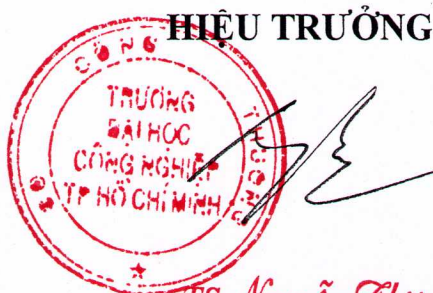 HIỆU TRƯỞNG
BỘ CÔNG THƯƠNG
TRƯỜNG
ĐẠI HỌC
CÔNG NGHIỆP
TP HỒ CHÍ MINH
TS. Nguyễn